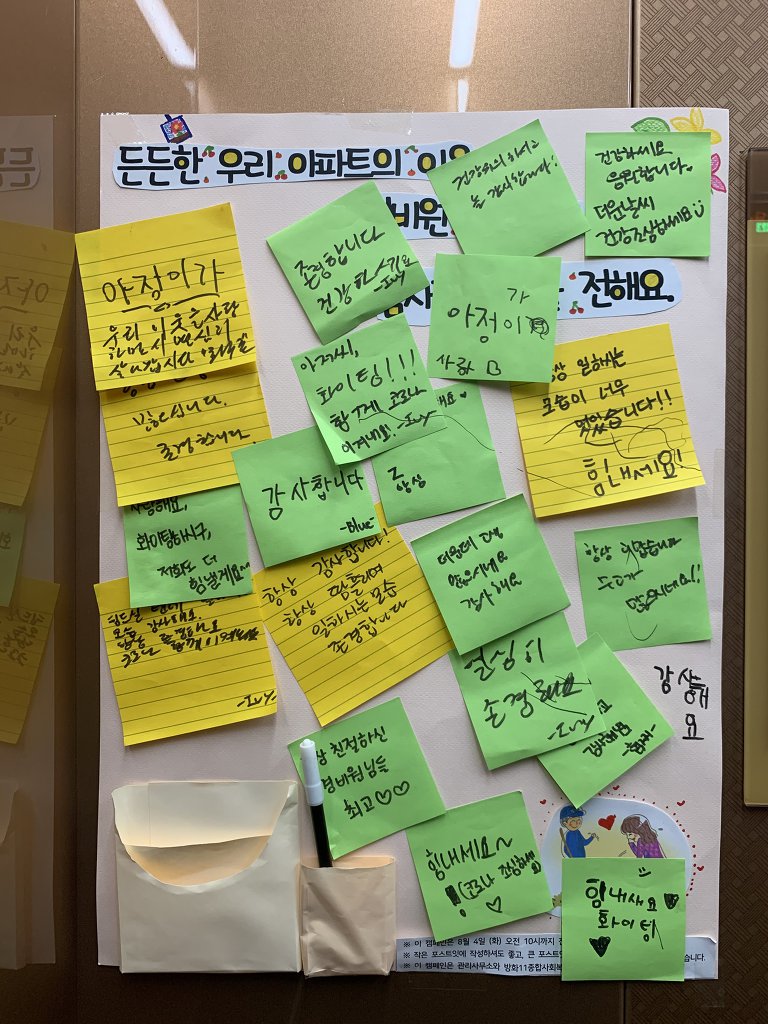 든든한 우리 아파트의 이유
비원
전해요.
건강하세요
응원합니다.
더운날씨
건강조심하세요
늘 감사합니다!
존경합니다
건강하세요
-Ivy-
야정이가
우리 이웃을 사랑
살아갑시다
가
야정이
사랑
아저씨,
파이팅!!!
함께 코로나
이겨내요! -Ivy-
항상 일하시는
모습이 너무
멋있습니다!!
힘내세요!
존경합니다.
감사합니다
-Blue-
항상
사랑해요,
화이팅하시구,
저희도 더
힘낼게요~
항상 감사합니다!
항상 땀흘리며
일하시는 모습
존경합니다
더운데 고생
많으시네요
감사해요
항상
수고가
많으시네요!!
힘드실 텐데
오늘도 감사해요.
-Ivy-
열심히
존경해요
-Ivy-
감사해요
항상 친절하신
경비원님들
최고♡♡
힘내세요~
!(코로나 조심하세요)
♡
힘내세요♥
화이팅
♥
※ 이 캠페인은 8월 4일 (화) 오전 10시까지
※ 작은 포스트잇에 작성하셔도 좋고, 큰 포스트잇 습니다.
※ 이 캠페인은 관리사무소와 방화11종합사회복